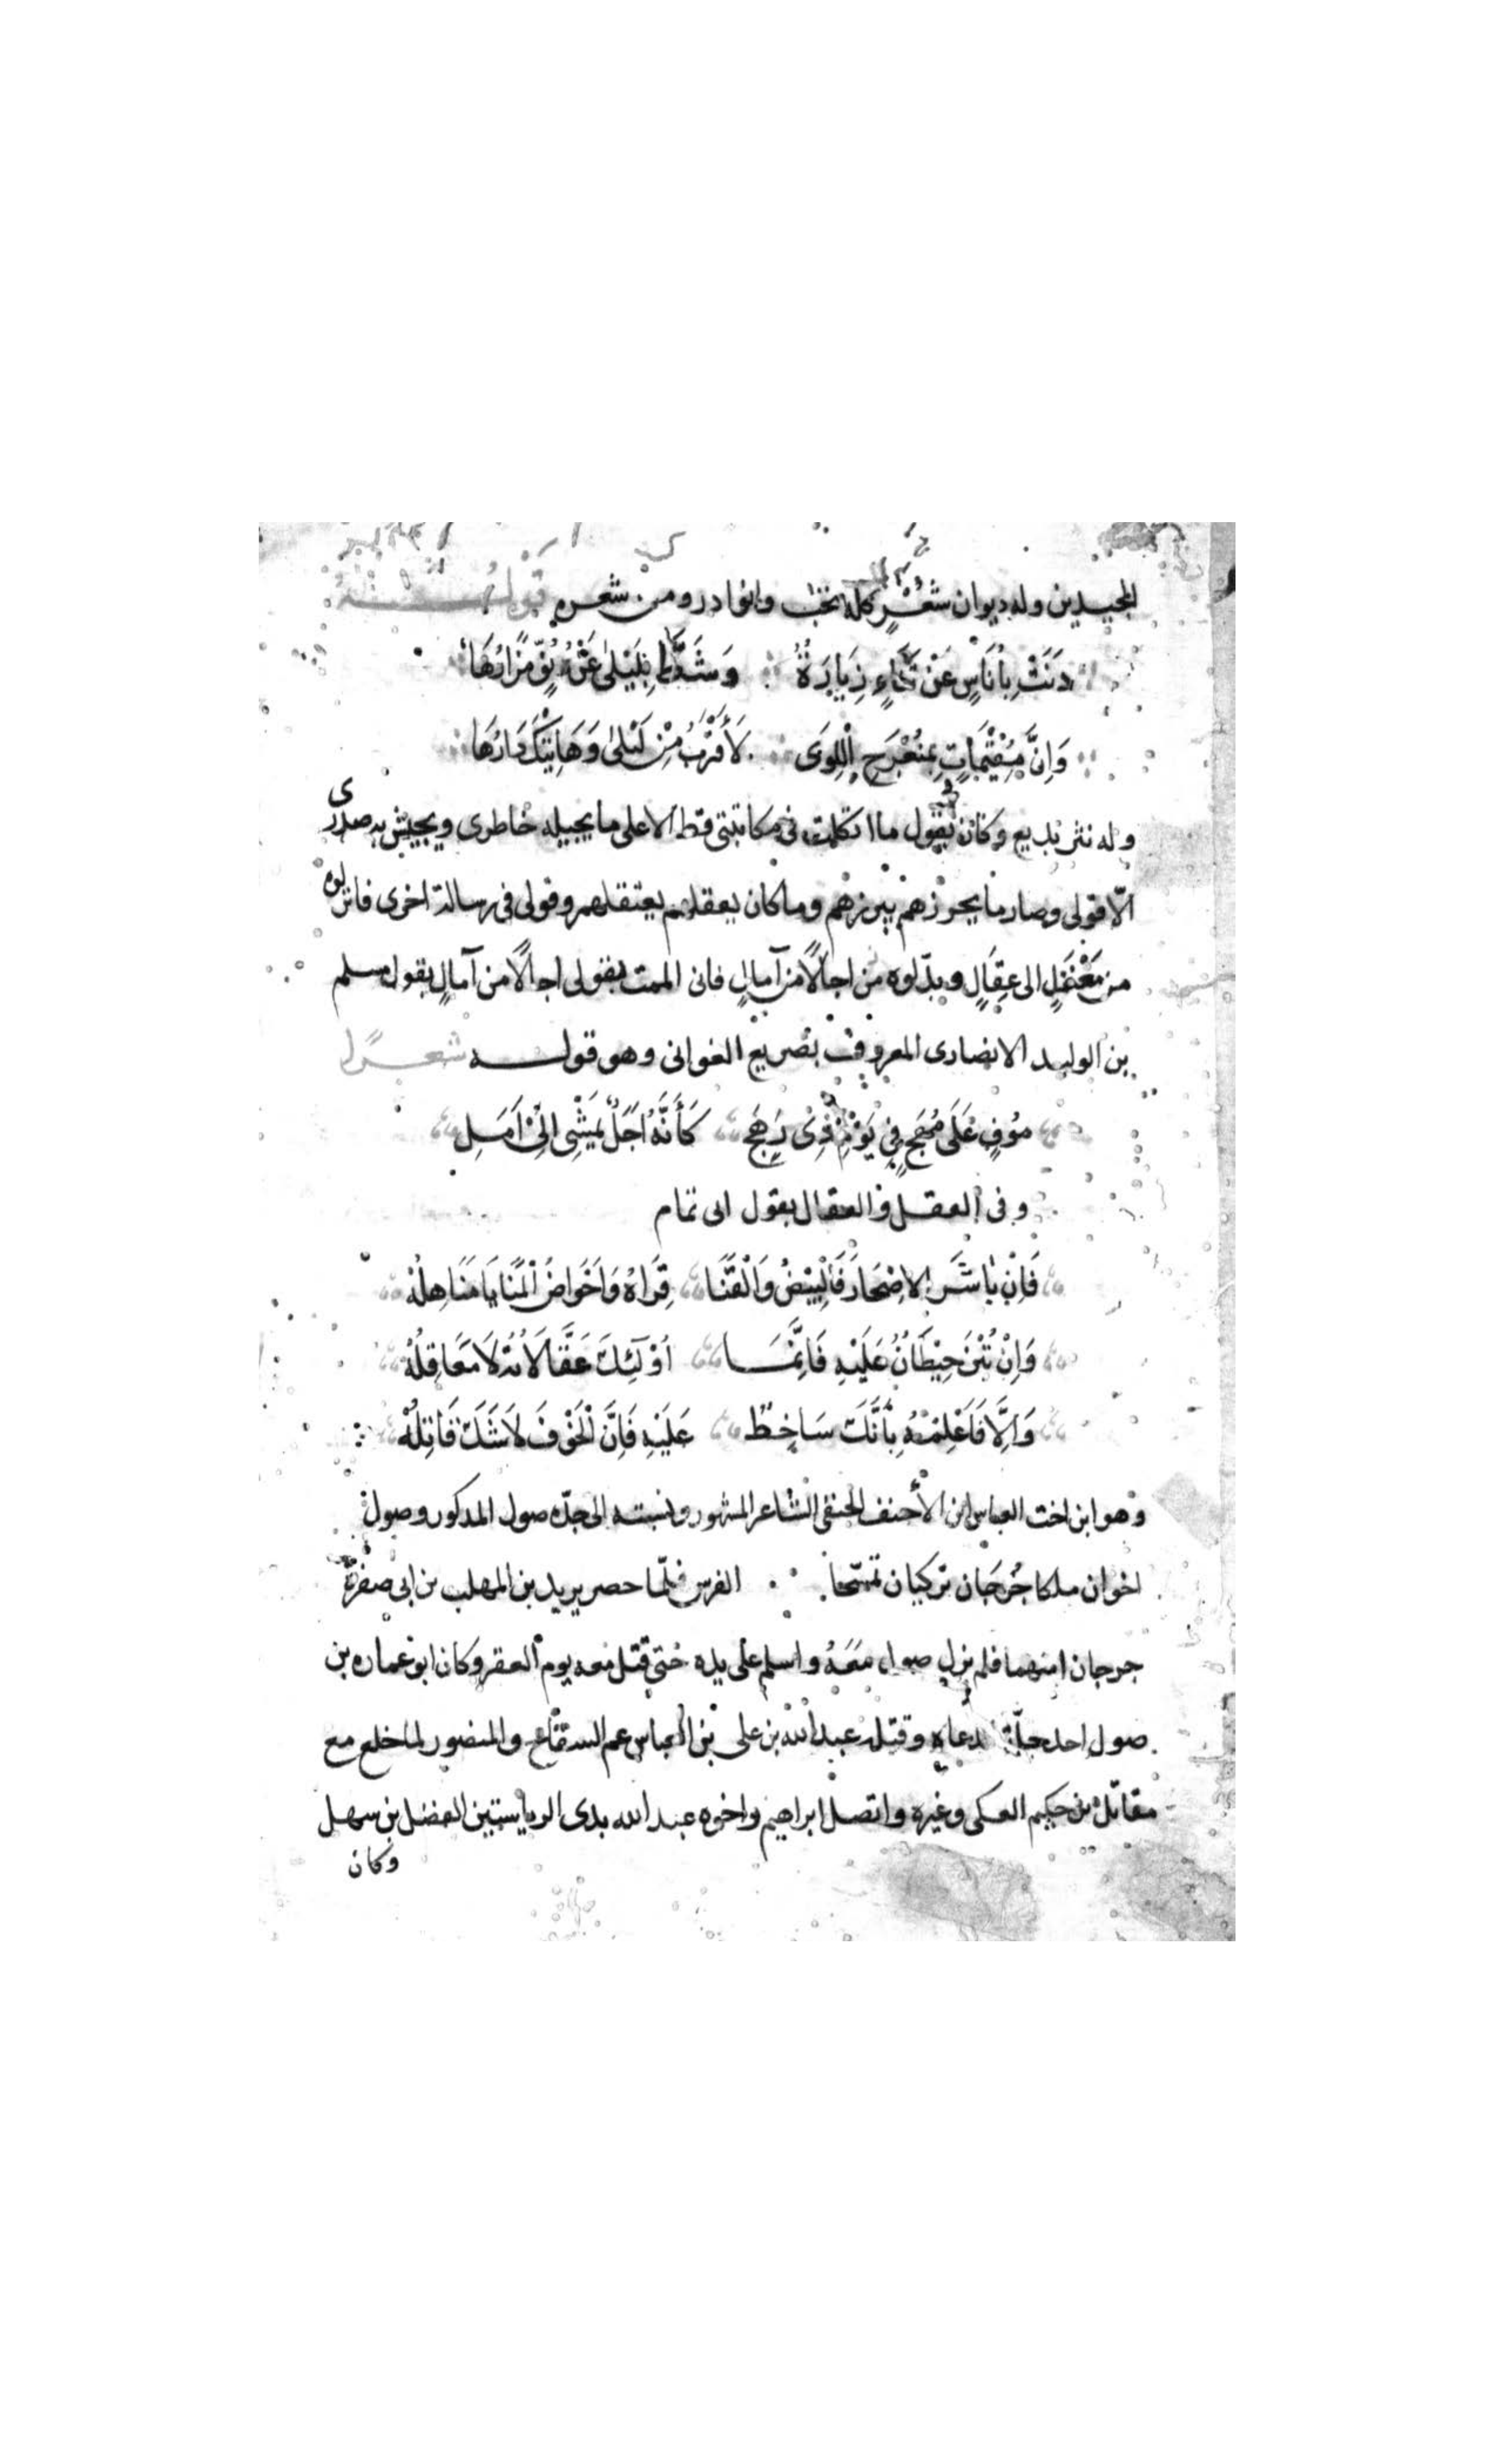 المجيدين وله ديوان شعر كله نخب وانوادر ومن شعره قوله
دَنَتْ بِأُنَاسٍ عَنْ تَنَاءٍ زِيَارَةٌ وَشَطَّ بِلَيْلىٰ عَنْ دُنُوٍّ مَزَارُهَا
وَاِنَّ مُقِيْمَاتٍ بِمُنْعَرَجِ اللِّوَى لَأَقْرَبُ مِنْ لَيْلىٰ وَهَاتِيْكَ دَارُهَا
وله نثر بديع وكان يقول ما اتكلت فى مكاتبتى قط الا على ما يجيله خاطرى ويجيش به صدرى
الّا قولى وصار ما يحرزهم يبرزهم وما كان يعقلهم يعتقلهم وقولى فى رسالة اخرى فانزلوه
من مَعْقَلٍ الى عِقَالٍ وبدّلوه من اجالًا من آمالٍ فانى الممت بقولى اجالًا من آمالٍ بقول مسلم
بن الوليد الانصارى المعروف بصريع الغوانى وهو قوله شعرًا
مُوْفٍ عَلَى مُهَجٍ فِى يَوْمٍ ذِى رَهَجٍ كَأَنَّهُ اَجَلٌ يَمْشِى اِلَىٰ اَمَلِ
وفى العقل والعقال بقول ابى تمام
فَاِنْ بَاشَرَ الاِصْحَارَ فَالْبِيْضُ وَالْقَنَا قِرَاهُ وَاَحْوَاضُ الْمَنَايَا مَنَاهِلُهْ
وَاِنْ تُبْنَ حِيْطَانٌ عَلَيْهِ فَاِنَّمَا اُوْلٰئِكَ عَقَّالَاتُهُ لَا مَعَاقِلُهْ
وَاِلَّا فَاَعْلِمْهُ بِأَنَّكَ سَاخِطٌ عَلَيْهِ فَاِنَّ الْخَوْفَ لَا شَكَّ قَاتِلُهْ
وهو ابن اخت العباس ابن الأحنف الحنفى الشاعر المشهور ونسبته الى جدّه صول المذكور وصول
اخوان ملكا جُرجَان تركيان تمجّسا الفرس فلمّا حصر يزيد بن المهلب بن ابى صفرة
جرجان امنهما فلم يزل صول مَعَهُ واسلم على يده حتى قتل معه يوم العقر وكان ابو عماره بن
صول احد جلّة دعاه وقتله عبد الله بن على بن العباس عم السفاح والمنصور لما خلع مع
مقاتل بن حكيم العكى وغيره واتصل ابراهيم واخوه عبد الله بذى الرياستين الفضل بن سهل
وكان